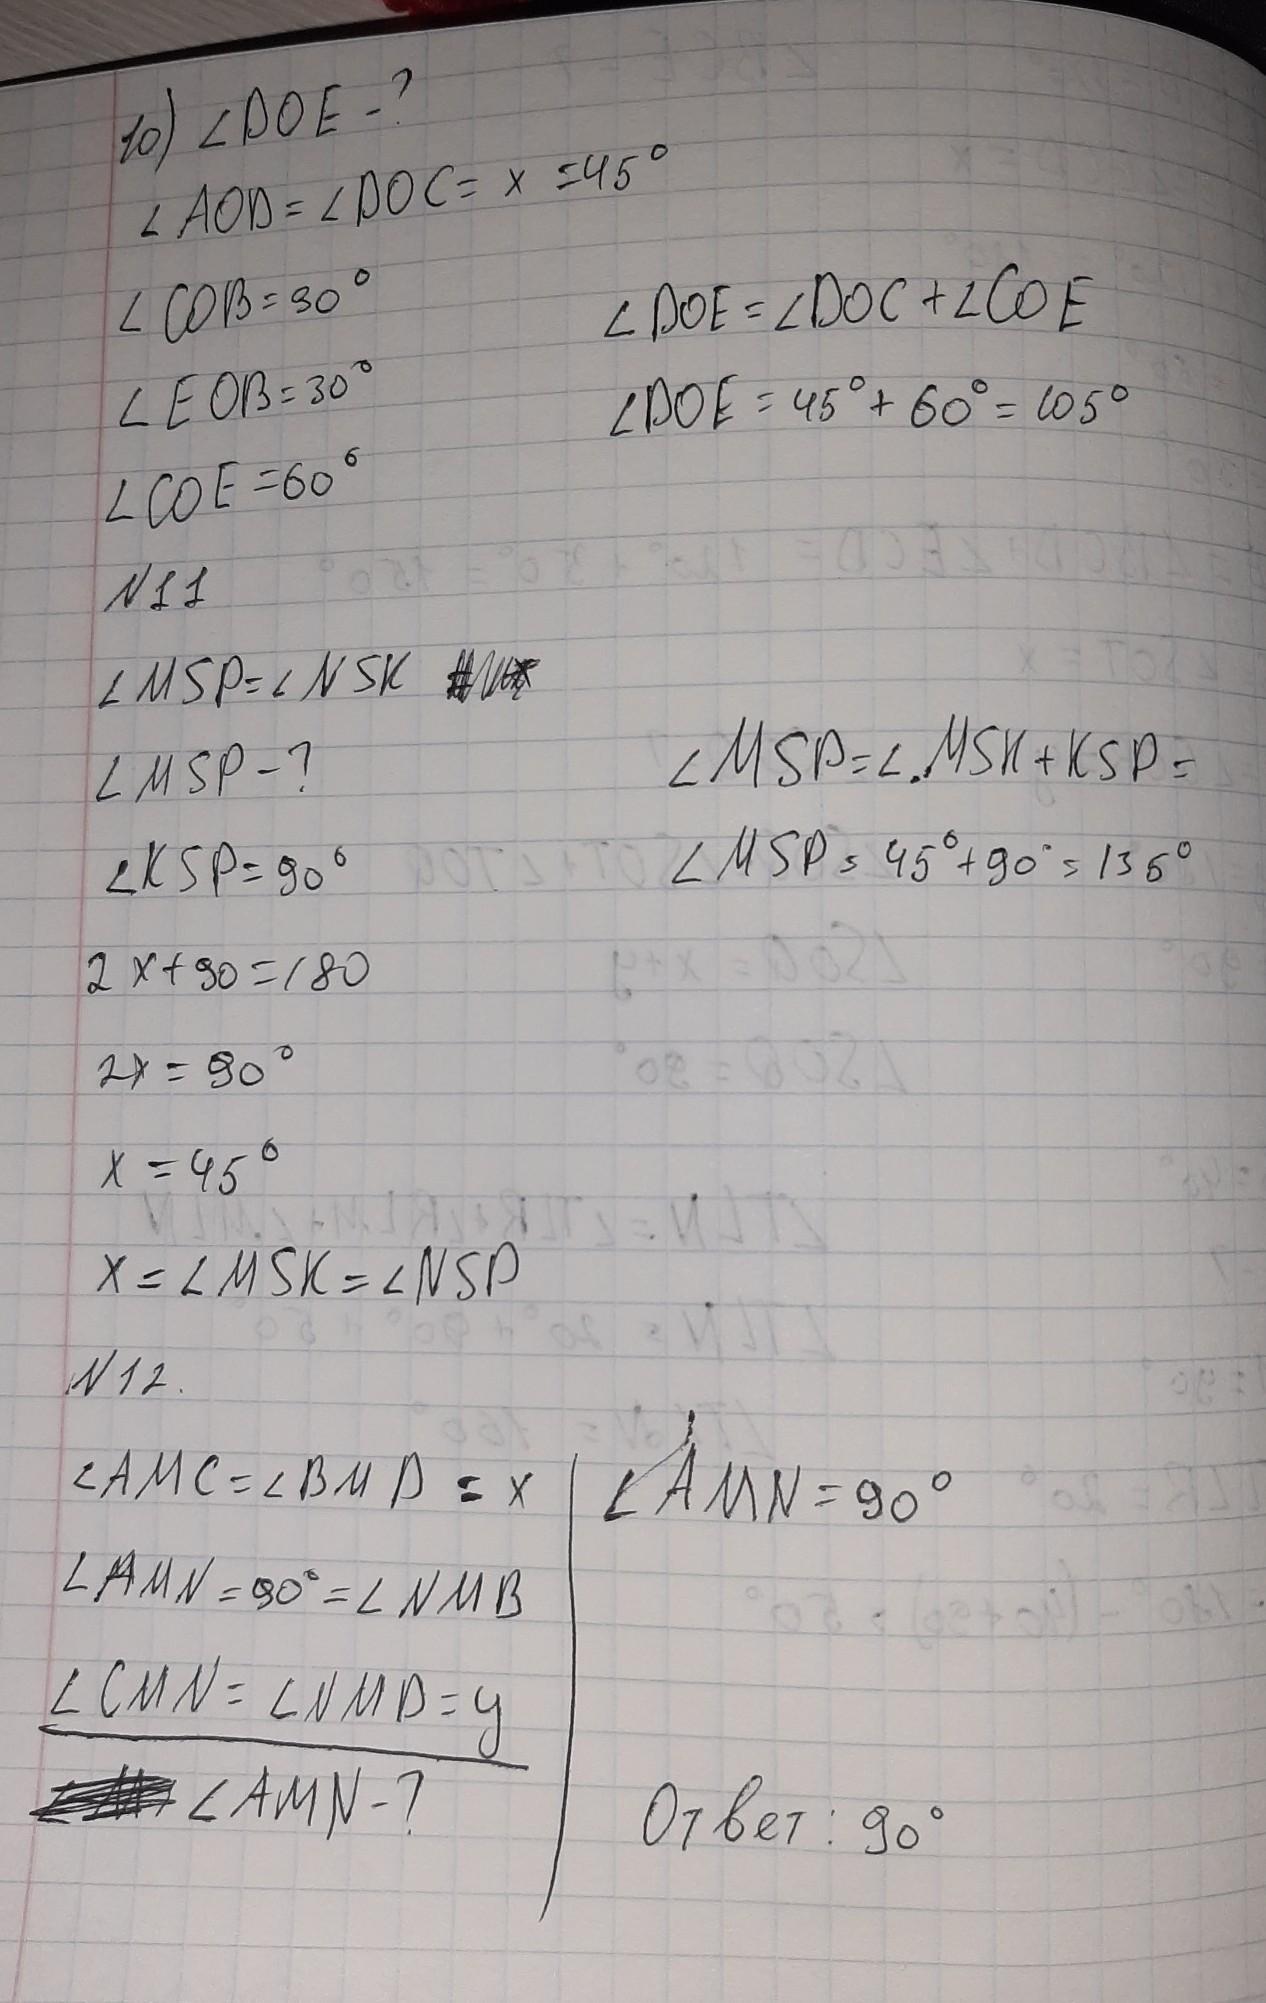 10) ∠DOE - ?
∠AOD = ∠DOC = x = 45°
∠COB = 90°
∠EOB = 30°
∠COE = 60°
∠DOE = ∠DOC + ∠COE
∠DOE = 45° + 60° = 105°
N11
∠MSP = ∠NSK
∠MSP - ?
∠KSP = 90°
2x + 90 = 180
2x = 90°
x = 45°
x = ∠MSK = ∠NSP
∠MSP = ∠MSK + KSP =
∠MSP = 45° + 90° = 135°
N12.
∠AMC = ∠BMD = x
∠AMN = 90° = ∠NMB
∠CMN = ∠NMD = y
∠AMN - ?
∠AMN = 90°
Ответ: 90°